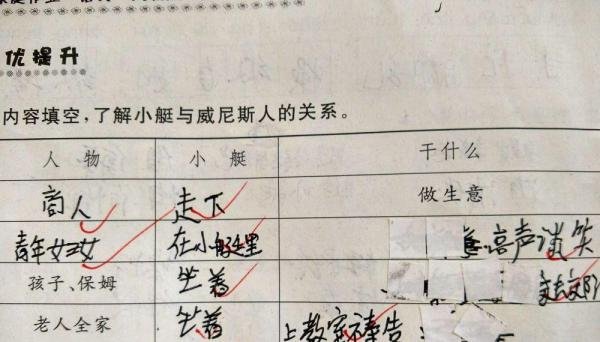 优提升
内容填空，了解小艇与威尼斯人的关系。
人 物 小 艇 干什么
商人 走下 做生意
青年妇女 在小艇里 高声谈笑
孩子、保姆 坐着
老人全家 坐着 上教堂祷告